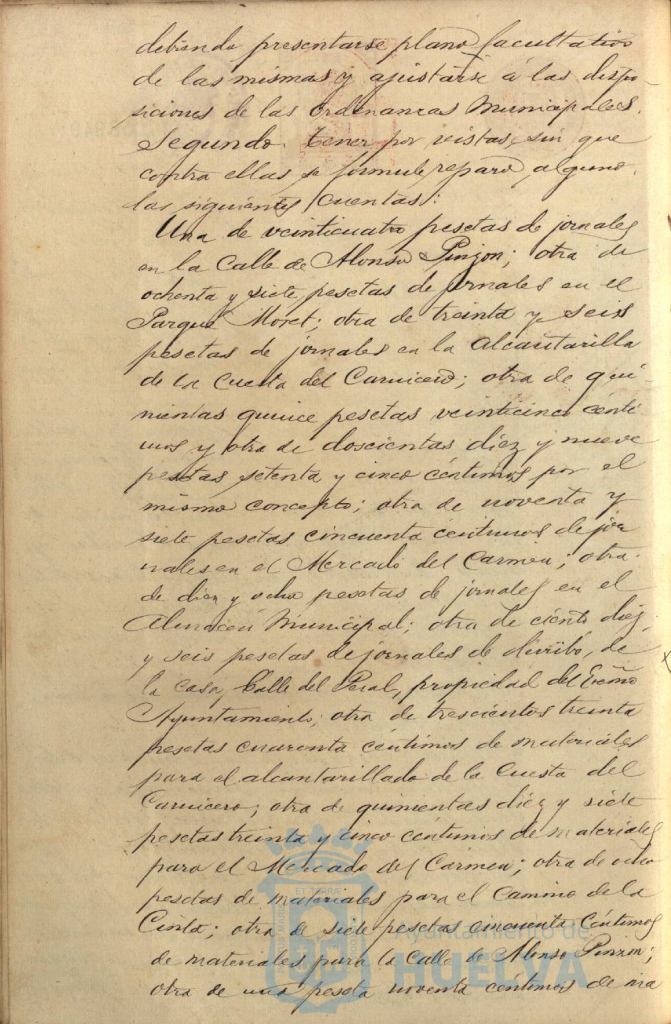 debiendo presentarse plano facultativo
de las mismas y ajustarse á las dispo-
siciones de las Ordenanzas Municipales.
Segundo. Tener por vistas, sin que
contra ellas se formule reparo, alguno,
las siguientes cuentas:
Una de veinticuatro pesetas de jornales
en la Calle de Alonso Pinzon; otra de
ochenta y siete pesetas de jornales en el
Parque Moret; otra de treinta y seis
pesetas de jornales en la Alcantarilla
de la Cuesta del Carnicero; otra de qui-
nientas quince pesetas veinticinco cénti-
mos y otra de doscientas diez y nueve
pesetas setenta y cinco céntimos por el
mismo concepto; otra de noventa y
siete pesetas cincuenta centimos de jor
nales en el Mercado del Carmen; otra
de diez y ocho pesetas de jornales en el
Almacén Municipal; otra de ciento diez
y seis pesetas de jornales de derribo, de
la casa, Calle del Peral, propiedad del Excmo
Ayuntamiento; otra de trescientos treinta
pesetas cuarenta céntimos de materiales
para el alcantarillado de la Cuesta del
Carnicero; otra de quinientas diez y siete
pesetas treinta y cinco céntimos de materiales
para el Mercado del Carmen; otra de ocho
pesetas de materiales para el Camino de la
Cinta; otra de siete pesetas cincuenta céntimos
de materiales para la Calle de Alonso Pinzon;
otra de una peseta noventa céntimos de ma
Ayuntamiento de
HUELVA